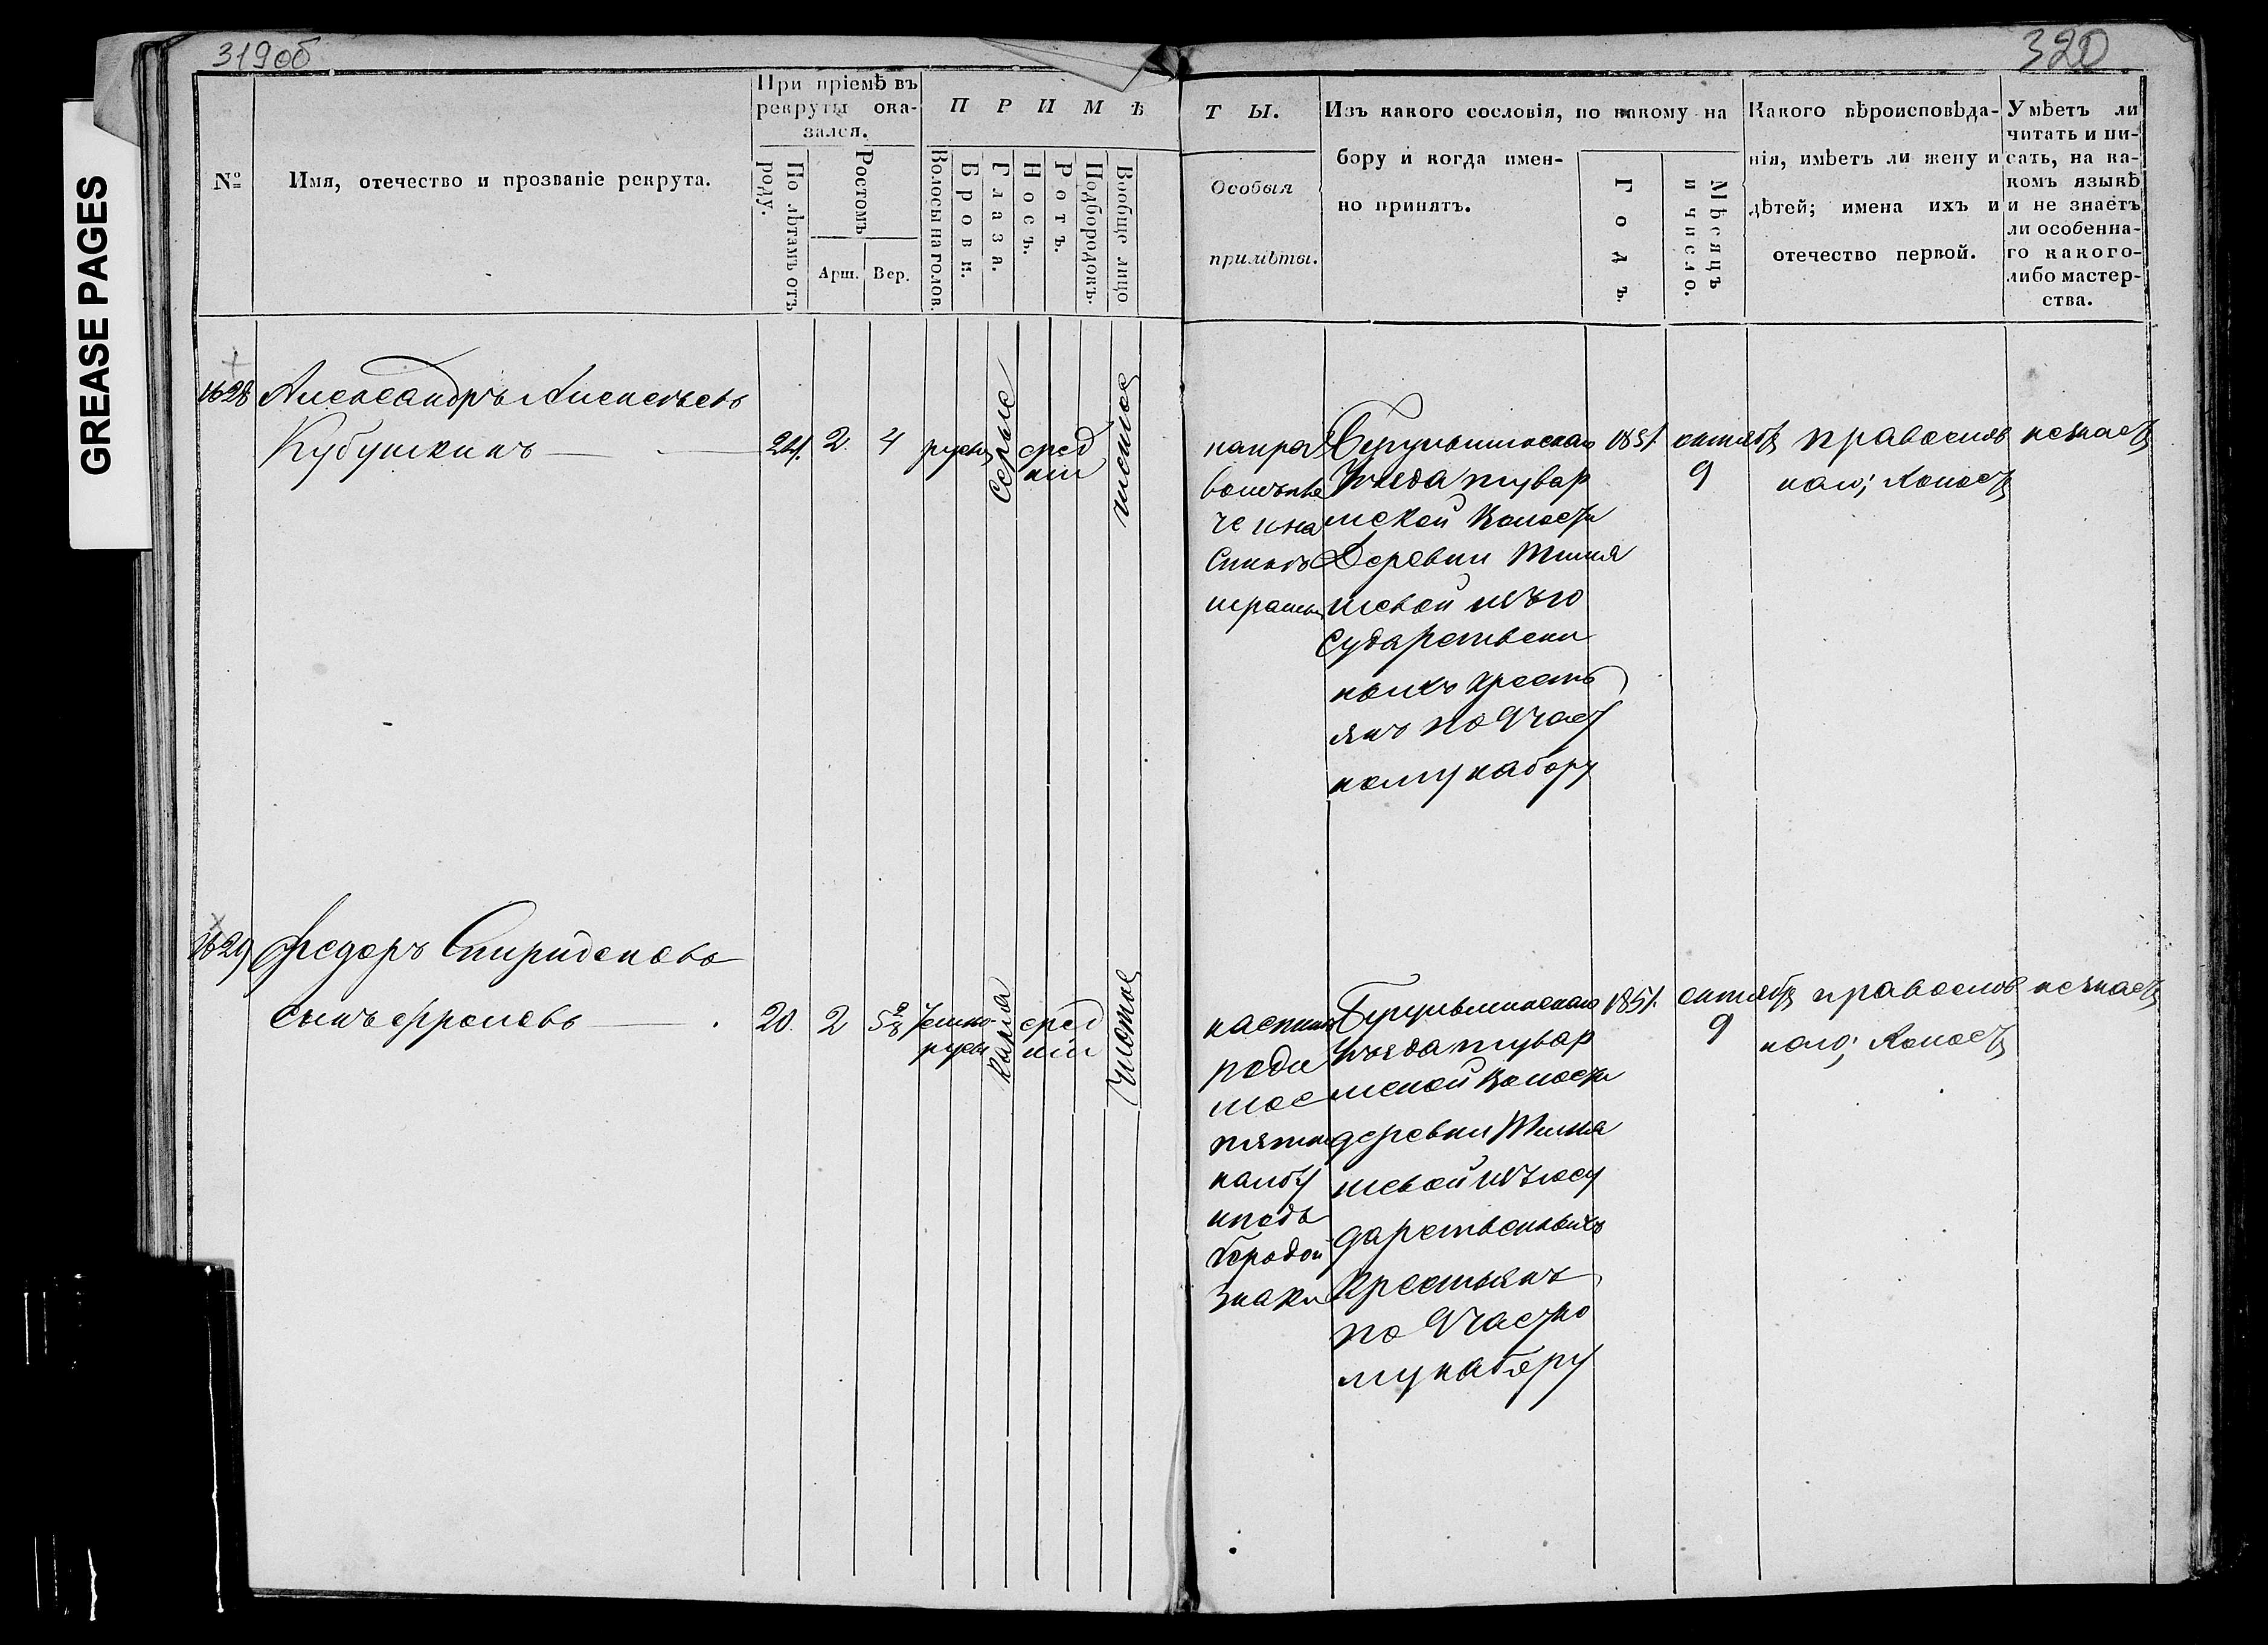 GREASE PAGES
319об
320
№
Имя, отечество и прозваніе рекрута.
При пріемѣ въ
рекруты ока-
зался.
По лѣтамъ отъ
роду.
Ростомъ
Арш.
Вер.
ПРИМѢ
Волосы на голов.
Брови.
Глаза.
Носъ.
Ротъ.
Подбородокъ.
Вообще лицо
ТЫ.
Особыя
примѣты.
Изъ какого сословія, по какому на
бору и когда имен-
но принятъ.
Годъ.
Мѣсяцъ
и число.
Какого вѣроисповѣда-
нія, имѣетъ ли жену и
дѣтей; имена ихъ и
отечество первой.
Умѣетъ ли
читать и пи-
сать, на ка-
комъ языкѣ
и не знаетъ
ли особенна-
го какого-
либо мастер-
ства.
1628
Александръ Алексѣевъ
Кубушкинъ
24.
2.
4
русы
Серые
сред
ніи
чистое
на
спинѣ
шрамы
Бугульминскаго
Уѣзда тувар
мской Волости
Деревни Тимя
шевой изъ го
сударственн
ныхъ кресть
янъ по 9 част
ному набору
1851.
октябр
9
православ
наго; холост
незнает
1629
Федоръ Спиридонова
сынъ Фроловъ
20.
2
5 2/8
темно-
русы
Карія
сред
ніи
Чистое
на спине
роди
мое
пятно
на лбу
и подъ
бородой
знаки
Бугульминскаго
Уѣзда тувар
мской Волости
деревни Тимя
шевой изъ госу
дарственныхъ
Крестьянъ
по 9 частно
му набору
1851.
октябр
9
православ
наго; холост
незнает